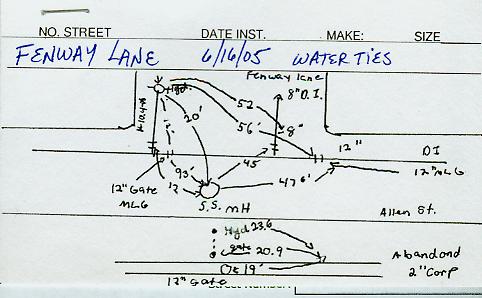 NO. STREET DATE INST. MAKE: SIZE
FENWAY LANE 6/16/05 WATER TIES
Fenway lane
Hyd.
52'
8" D.I.
20'
56'
8"
12"
DI
45
93'
12" Gate
MLG
12
47 6"
12" MLG
S.S. MH
Allen St.
Hyd 23.6
gate 20.9
Abandond
19'
2" Corp
12" Gate